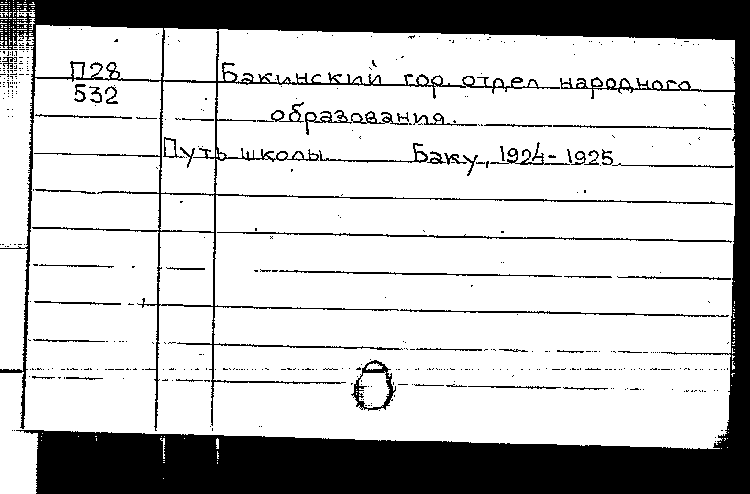 П28 Бакинский гор. отдел народного
532 образования.
Путь школы Баку, 1924-1925.